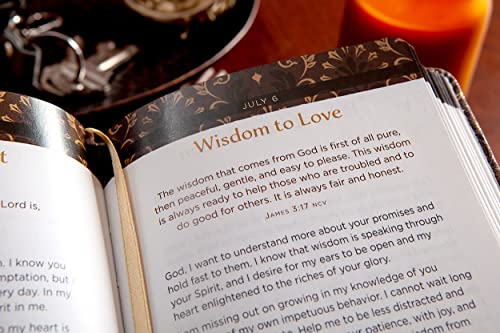 t
Lord is,
, I know you
mptation, but
ery day. In my
rit in me.
to my heart is
JULY 6
Wisdom to Love
The wisdom that comes from God is first of all pure,
then peaceful, gentle, and easy to please. This wisdom
is always ready to help those who are troubled and to
do good for others. It is always fair and honest.
JAMES 3:17 NCV
God, I want to understand more about your promises and
hold fast to them. I know that wisdom is speaking through
your Spirit, and I desire for my ears to be open and my
heart enlightened to the riches of your glory.
am missing out on growing in my knowledge of you
of my own impetuous behavior. I cannot wait long
Help me to be less distracted and
your patience, with joy, and
wisdom from